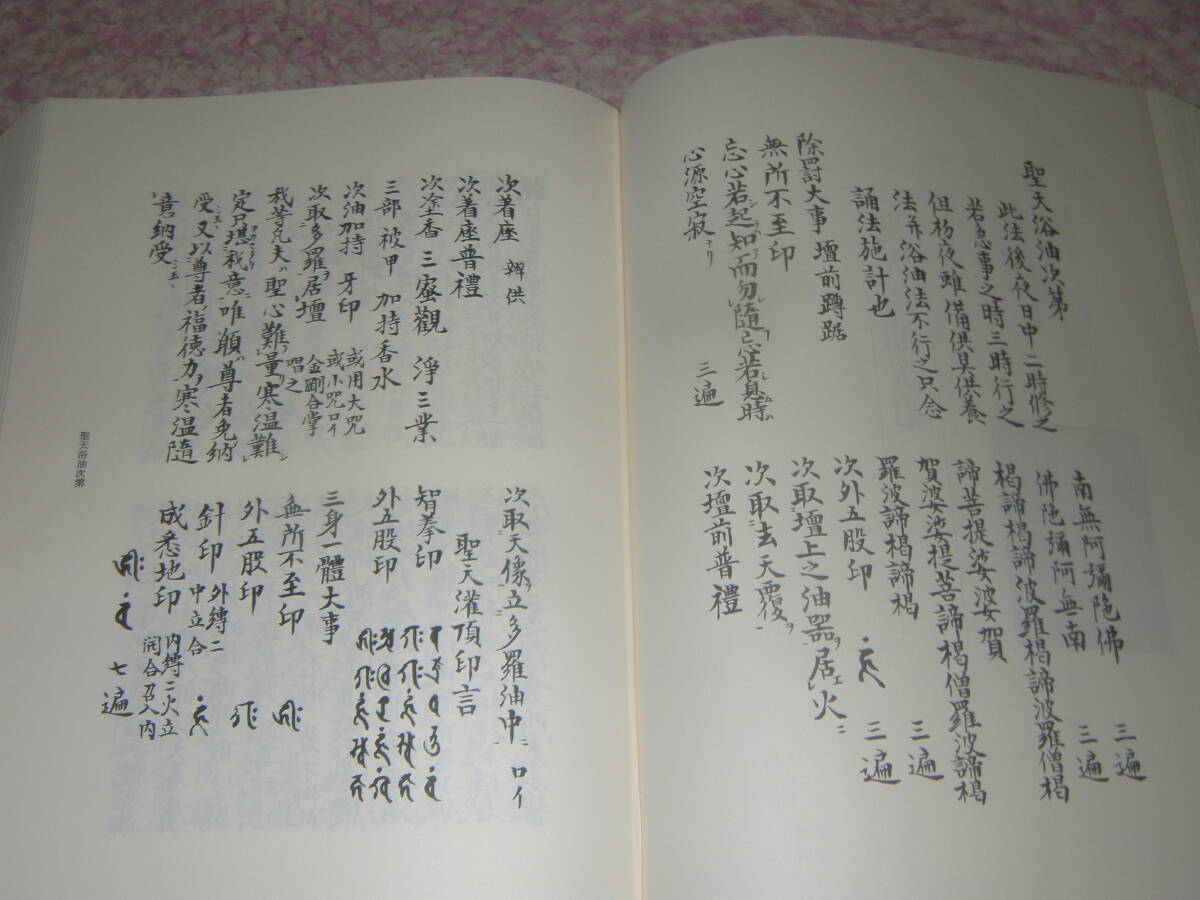 聖天浴油次第
此法後夜日中二時修之
若急事之時三時行之
但初夜雖備供具供養
法并浴油法不行之只念
誦法施計也
除罸大事 壇前蹲踞
無所不至印
忘心若起知而勿隨忘若息時
心源空寂ナリ 三遍
南無阿彌陀佛 三遍
佛陀彌阿無南 三遍
楬諦楬諦波羅楬諦波羅僧楬
諦菩提娑婆賀
賀婆娑提菩諦楬僧羅波諦楬
羅波諦楬諦楬 三遍
次外五股印 三遍
次取壇上之油器ヲ居火ニ
次取去天覆ヲ
次壇前普禮
次着座 辨供
次着座普禮
次塗香 三密觀 淨三業
三部 被甲 加持香水
次油加持 牙印 或用大咒
或小咒ロイ
次取多羅ヲ居壇ニ 金剛合掌
唱之
我等凡夫ハ聖心難量寒温難
定只堪我意ニ唯願尊者免納
受又以尊者ノ福德力ヲ寒温隨
意納受
次取天像ヲ立多羅油中ニ ロイ
聖天灌頂印言
智拳印
外五股印
三身一體大事
無所不至印
外五股印
針印 外縛二
中立合
成悉地印 内縛二火立
開合召入内
七遍
聖天浴油次第